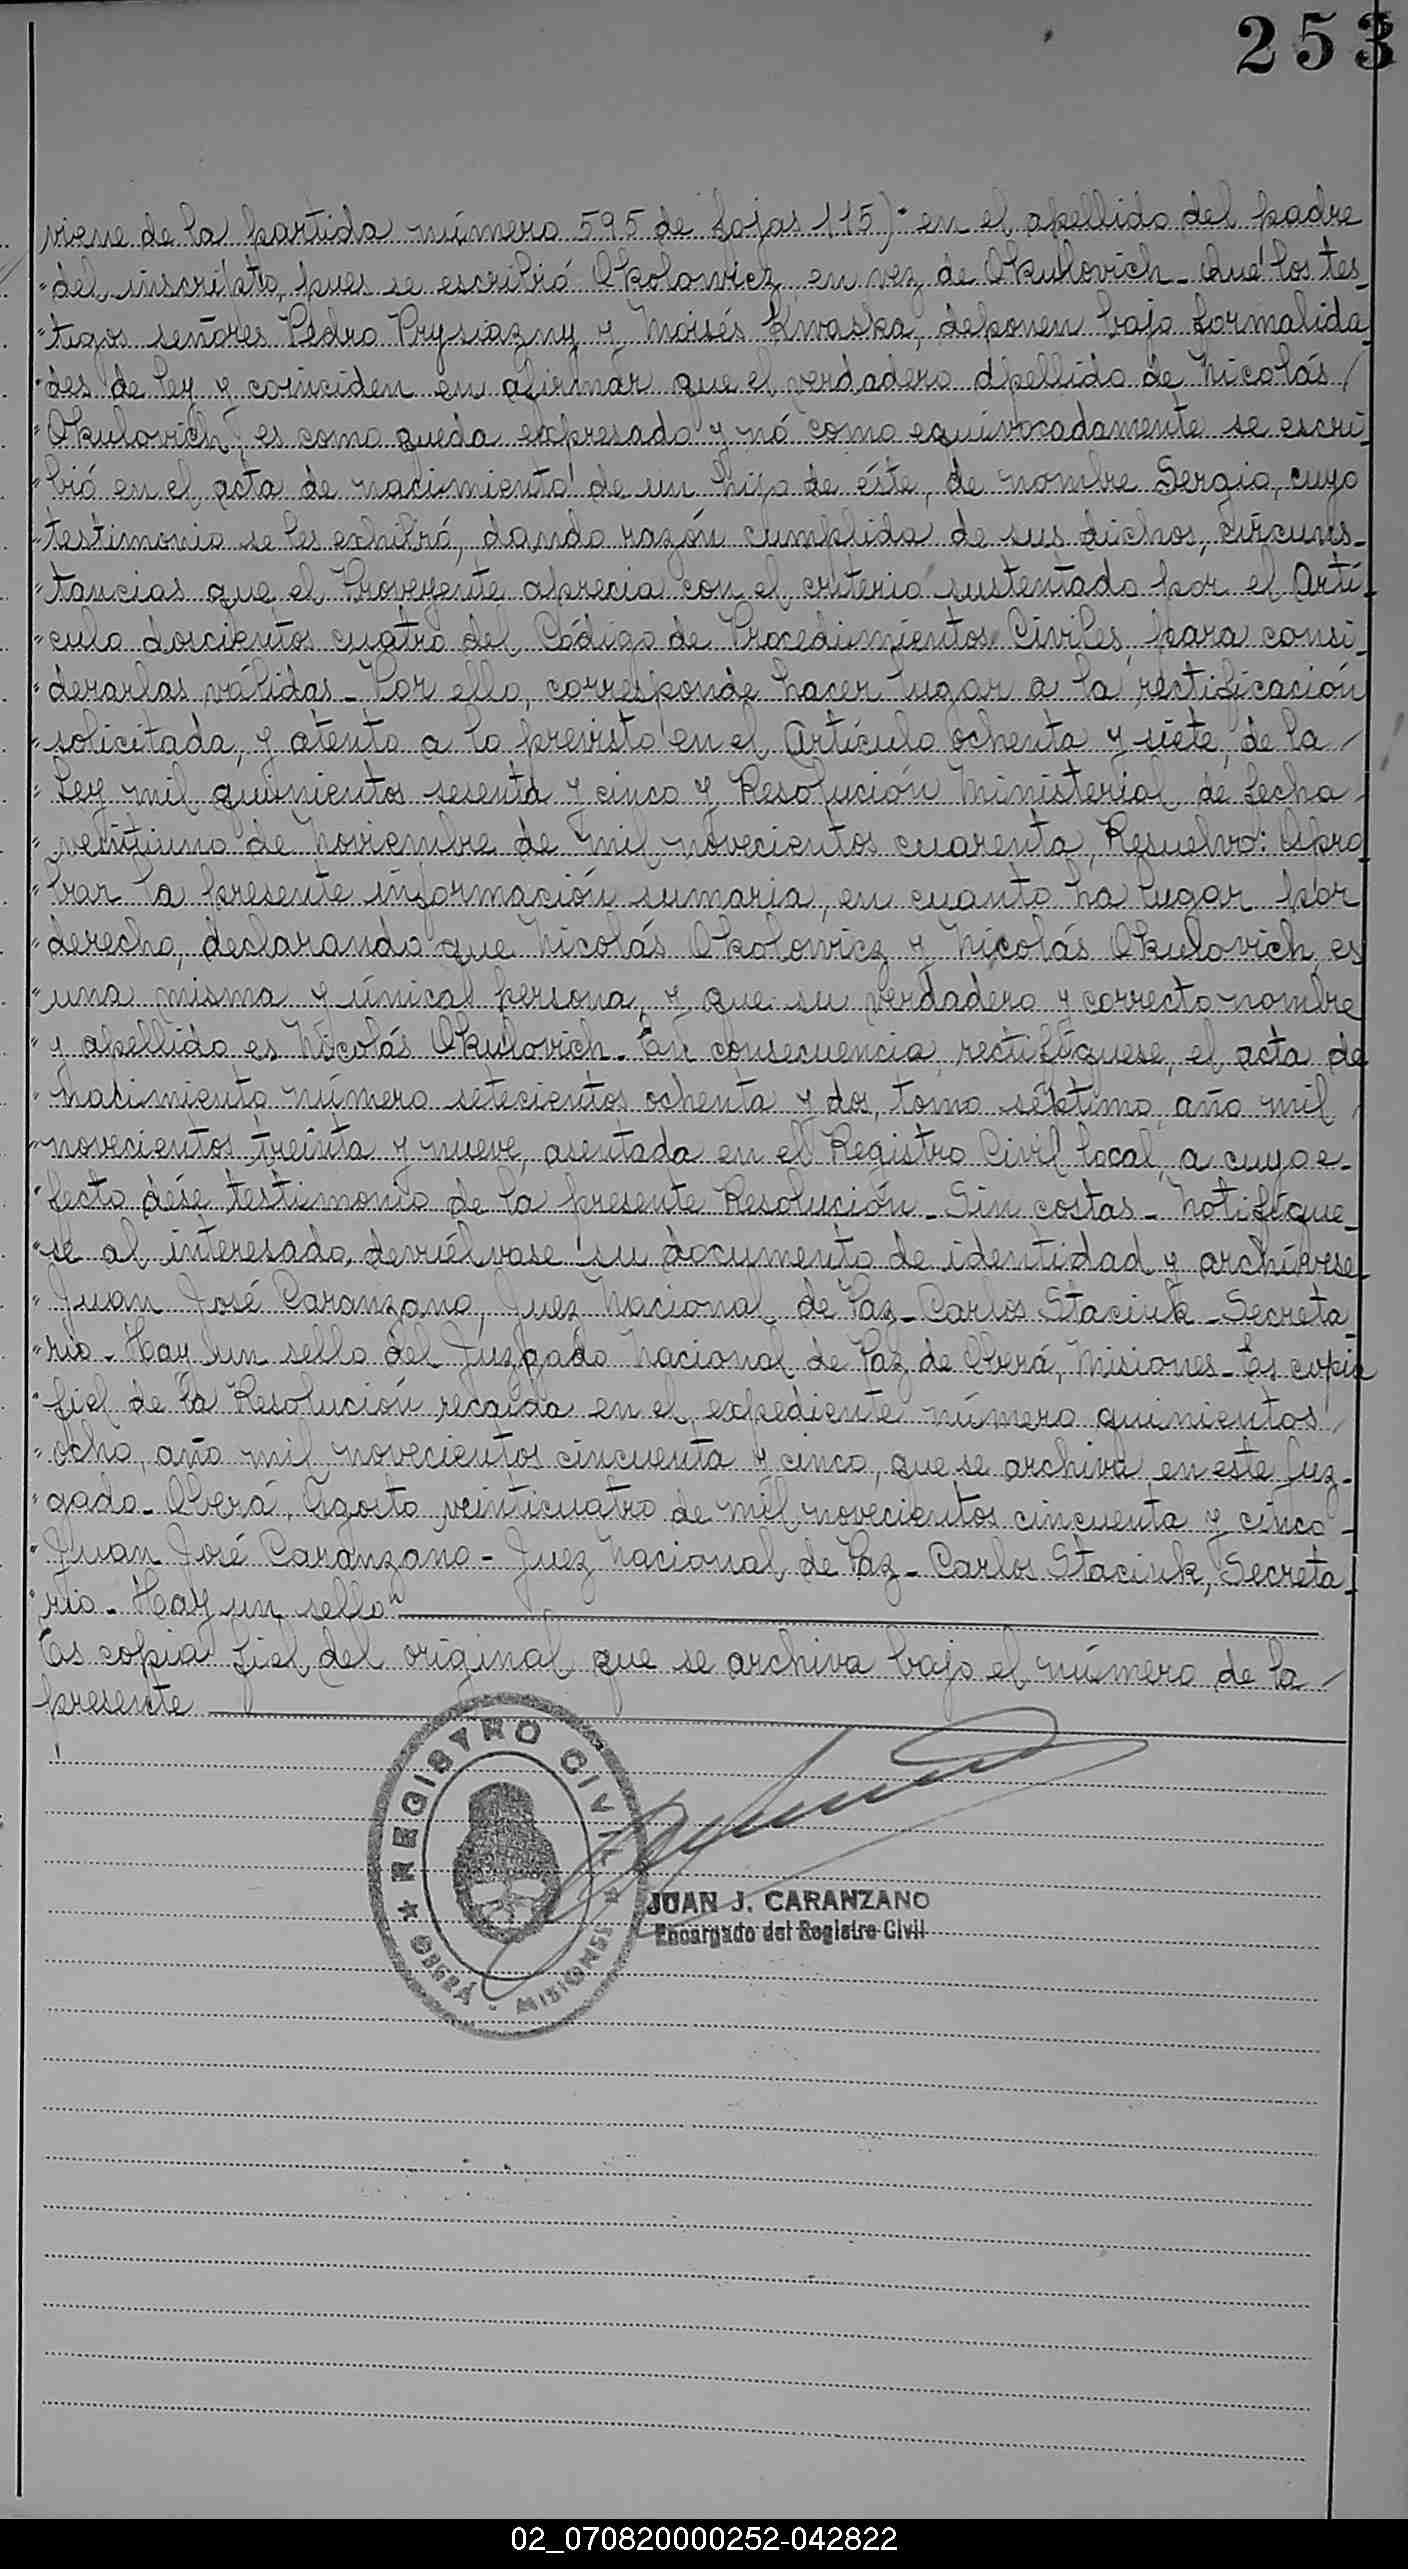 253
viene de la partida número 595 de fojas 115)" en el apellido del padre
"del inscripto, pues se escribió Okolowicz en vez de Okulovich_ Que los tes_
"tigos señores Pedro Prysiazny y Moisés Kwaska, deponen bajo formalida_
"des de ley y coinciden en afirmar que el verdadero apellido de Nicolás /
"Okulovich, es como queda expresado y nó como equivocadamente se escri_
"bió en el acta de nacimiento de un hijo de éste, de nombre Sergio, cuyo
"testimonio se les exhibió, dando razón cumplida de sus dichos, circuns_
"tancias que el Proveyente aprecia con el criterio sustentado por el Artí_
"culo doscientos cuatro del Código de Procedimientos Civiles, para consi_
"derarlas válidas_ Por ello, corresponde hacer lugar a la rectificación
"solicitada, y atento a lo previsto en el Artículo ochenta y siete, de la /
"Ley mil quinientos sesenta y cinco y Resolución Ministerial de fecha /
"veintiuno de Noviembre de mil novecientos cuarenta, Resuelvo: Apro_
"bar la presente información sumaria, en cuanto ha lugar por
"derecho, declarando que Nicolás Okolowicz y Nicolás Okulovich es
"una misma y única persona, y que su verdadero y correcto nombre
"y apellido es Nicolás Okulovich_ En consecuencia rectifíquese, el acta de
"nacimiento número setecientos ochenta y dos, tomo séptimo, año mil /
"novecientos treinta y nueve, asentada en el Registro Civil local, a cuyo e_
"fecto dése testimonio de la presente Resolución_ Sin costas_ Notifíque_
"se al interesado, devuélvase su documento de identidad y archívese_
"Juan José Caranzano, Juez Nacional de Paz_ Carlos Staciuk_ Secreta_
"rio_ Hay un sello del Juzgado Nacional de Paz de Oberá, Misiones_ Es copia
"fiel de la Resolución recaída en el expediente número quinientos /
"ocho, año mil novecientos cincuenta y cinco, que se archiva en este Juz_
"gado_ Oberá, Agosto veinticuatro de mil novecientos cincuenta y cinco_
"Juan José Caranzano_ Juez Nacional de Paz_ Carlos Staciuk, Secreta_
"rio_ Hay un sello"
Es copia fiel del original que se archiva bajo el número de la /
presente
REGISTRO CIVIL
OBERÁ - MISIONES
JUAN J. CARANZANO
Encargado del Registro Civil
02_070820000252-042822